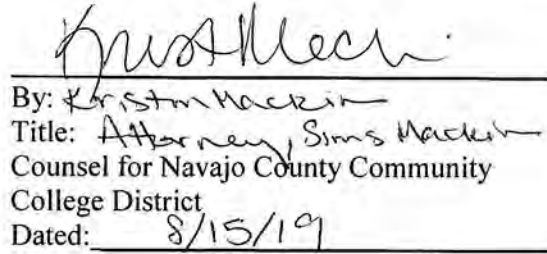 By: Kristin Mackin
Title: Attorney, Sims Mackin
Counsel for Navajo County Community
College District
Dated: 8/15/19